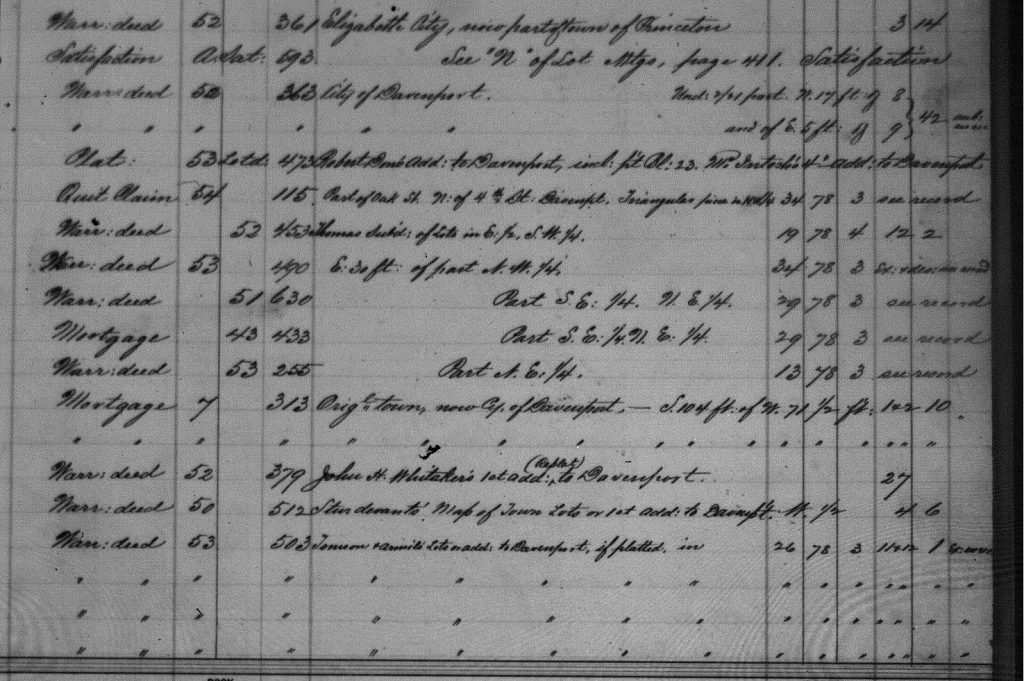 Warr: deed 52 361 Elizabeth City, now part of town of Princeton 3 14
Satisfaction A. Sat: 593 See "N" of Lot Mtgs, page 411. Satisfaction
Warr: deed 52 363 City of Davenport. Und: 2/21 part. N. 17 ft. of 8
" " " " " and of E. 5 ft: of 9 } 42
Plat: 53 Lotd: 473 Robert 's Add: to Davenport, incl: pt Bl: 23. Mc Intosh's 4" add: to Davenport
Quit Claim 54 115 Part of Oak St. N: of 4th St: Davenpt. Triangular piece in 34 78 3 see record
Warr: deed 52 453 Thomas Subd: of Lots in E. 1/2, S. W. 1/4. 19 78 4 12 2
Warr: deed 53 490 E. 30 ft: of part N. W. 1/4. 34 78 3
Warr: deed 51 630 Part S. E: 1/4. N. E 1/4. 29 78 3 see record
Mortgage 43 433 Part S. E: 1/4 N. E: 1/4. 29 78 3 see record
Warr: deed 53 255 Part N. E. 1/4. 13 78 3 see record
Mortgage 7 313 Orig: town, now Cy. of Davenport, — S. 104 ft. of W. 71 1/2 ft: 1+2 10
" " " " " " " " " " " " " " "
Warr: deed 52 379 John H. Whitaker's 1st add: (Replat) to Davenport. 27
Warr: deed 50 512 Sturdevants' Map of Town Lots or 1st Add: to Davenpt. W. 1/2 4 6
Warr: deed 53 503 Lots or add: to Davenport, if platted, in 26 78 3 11+12 1
" " " " " " " " " " " " " " "
" " " " " " " " " " " " " " "
" " " " " " " " " " " " " " "